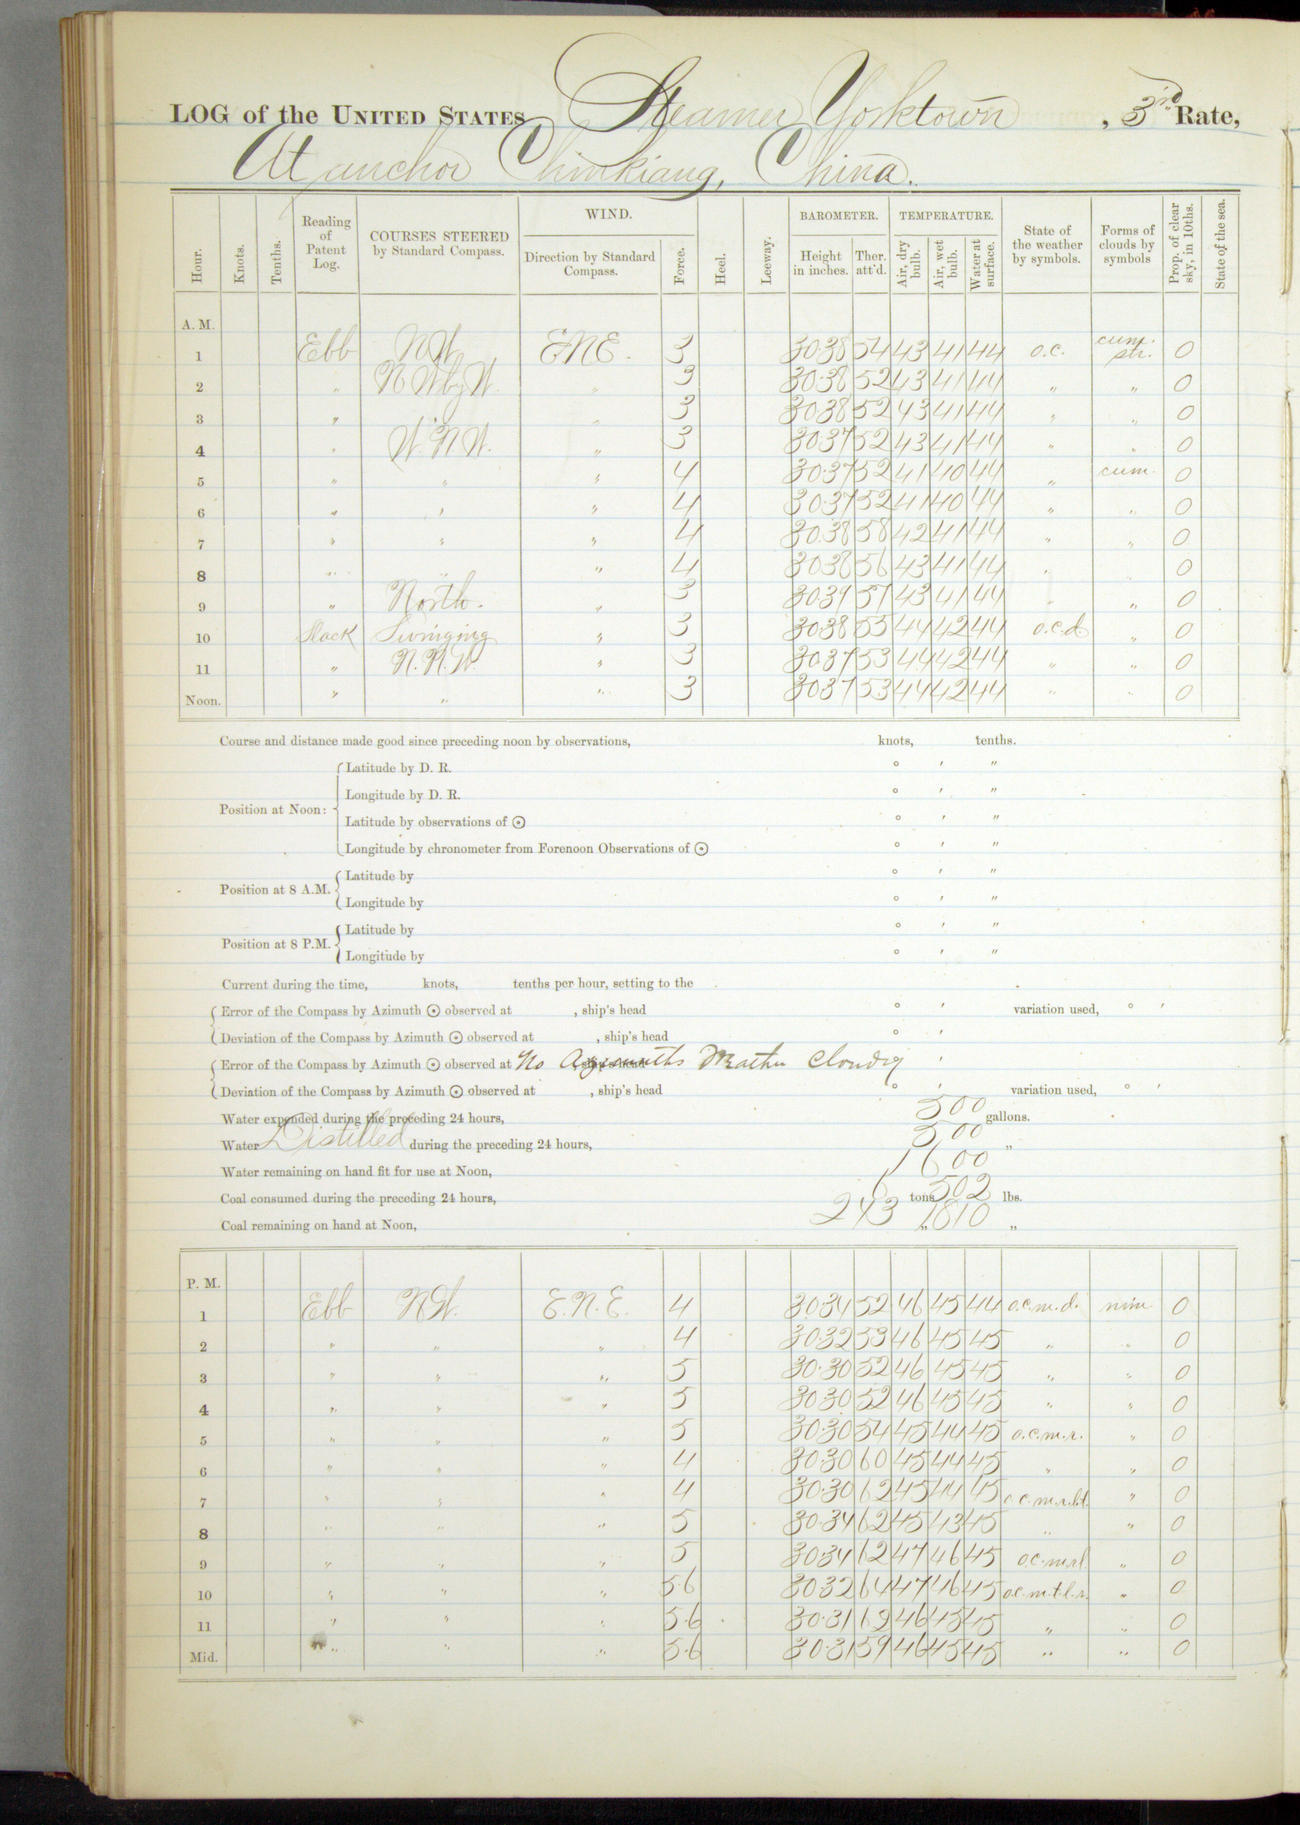 LOG of the UNITED STATES Steamer Yorktown, 3rd Rate,
At anchor Chinkiang, China.
Hour. Knots. Tenths. Reading of Patent Log. COURSES STEERED by Standard Compass. WIND. Direction by Standard Compass. Force. Heel. Leeway. BAROMETER. Height in inches. Ther. att'd. TEMPERATURE. Air, dry bulb. Air, wet bulb. Water at surface. State of the weather by symbols. Forms of clouds by symbols Prop. of clear sky, in 10ths. State of the sea.
A. M.
1 Ebb NW ENE. 3 30.38 54 43 41 44 o.c. cum. str. 0
2 " NW by W. " 3 30.38 52 43 41 44 " " 0
3 " " 3 30.38 52 43 41 44 " " 0
4 " W.N.W. " 3 30.37 52 43 41 44 " " 0
5 " " " 4 30.37 52 41 40 44 " cum. 0
6 " " " 4 30.37 52 41 40 44 " " 0
7 " " " 4 30.38 58 42 41 44 " " 0
8 " " " 4 30.38 56 43 41 44 " " 0
9 " North. " 3 30.39 57 43 41 44 " " 0
10 Slack Swinging " 3 30.38 55 44 42 44 o.c.d. " 0
11 " N.N.W. " 3 30.37 53 44 42 44 " " 0
Noon. " " " 3 30.37 53 44 42 44 " " 0
Course and distance made good since preceding noon by observations, knots, tenths.
Position at Noon: Latitude by D. R. ° ′ ″
Longitude by D. R. ° ′ ″
Latitude by observations of ☉ ° ′ ″
Longitude by chronometer from Forenoon Observations of ☉ ° ′ ″
Position at 8 A.M. Latitude by ° ′ ″
Longitude by ° ′ ″
Position at 8 P.M. Latitude by ° ′ ″
Longitude by ° ′ ″
Current during the time, knots, tenths per hour, setting to the
Error of the Compass by Azimuth ☉ observed at , ship's head ° ′ variation used, ° ′
Deviation of the Compass by Azimuth ☉ observed at , ship's head ° ′
Error of the Compass by Azimuth ☉ observed at No Azimuths Weather cloudy ′
Deviation of the Compass by Azimuth ☉ observed at , ship's head ° ′ variation used, ° ′
Water expended during the preceding 24 hours, 500 gallons.
Water Distilled during the preceding 24 hours, 500 "
Water remaining on hand fit for use at Noon, 1600
Coal consumed during the preceding 24 hours, 6 tons 502 lbs.
Coal remaining on hand at Noon, 243 " 1810 "
P. M.
1 Ebb NW. E.N.E. 4 30.34 52 46 45 44 o.c.m.d. nim 0
2 " " " 4 30.32 53 46 45 45 " " 0
3 " " " 5 30.30 52 46 45 45 " " 0
4 " " " 5 30.30 52 46 45 45 " " 0
5 " " " 5 30.30 54 45 44 45 o.c.m.r. " 0
6 " " " 4 30.30 60 45 44 45 " " 0
7 " " " 4 30.30 62 45 44 45 o.c.m.r.l.t. " 0
8 " " " 5 30.34 62 45 43 45 " " 0
9 " " " 5 30.34 62 47 46 45 o.c.m.r.l. " 0
10 " " " 5.6 30.32 64 47 46 45 o.c.m.t.l.r. " 0
11 " " " 5.6 30.31 62 46 45 45 " " 0
Mid. " " " 5.6 30.31 59 46 45 45 " " 0